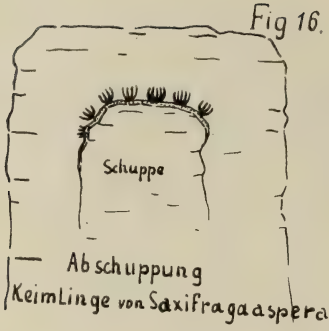 Fig 16.
Schuppe
Abschuppung
Keimlinge von Saxifraga aspera